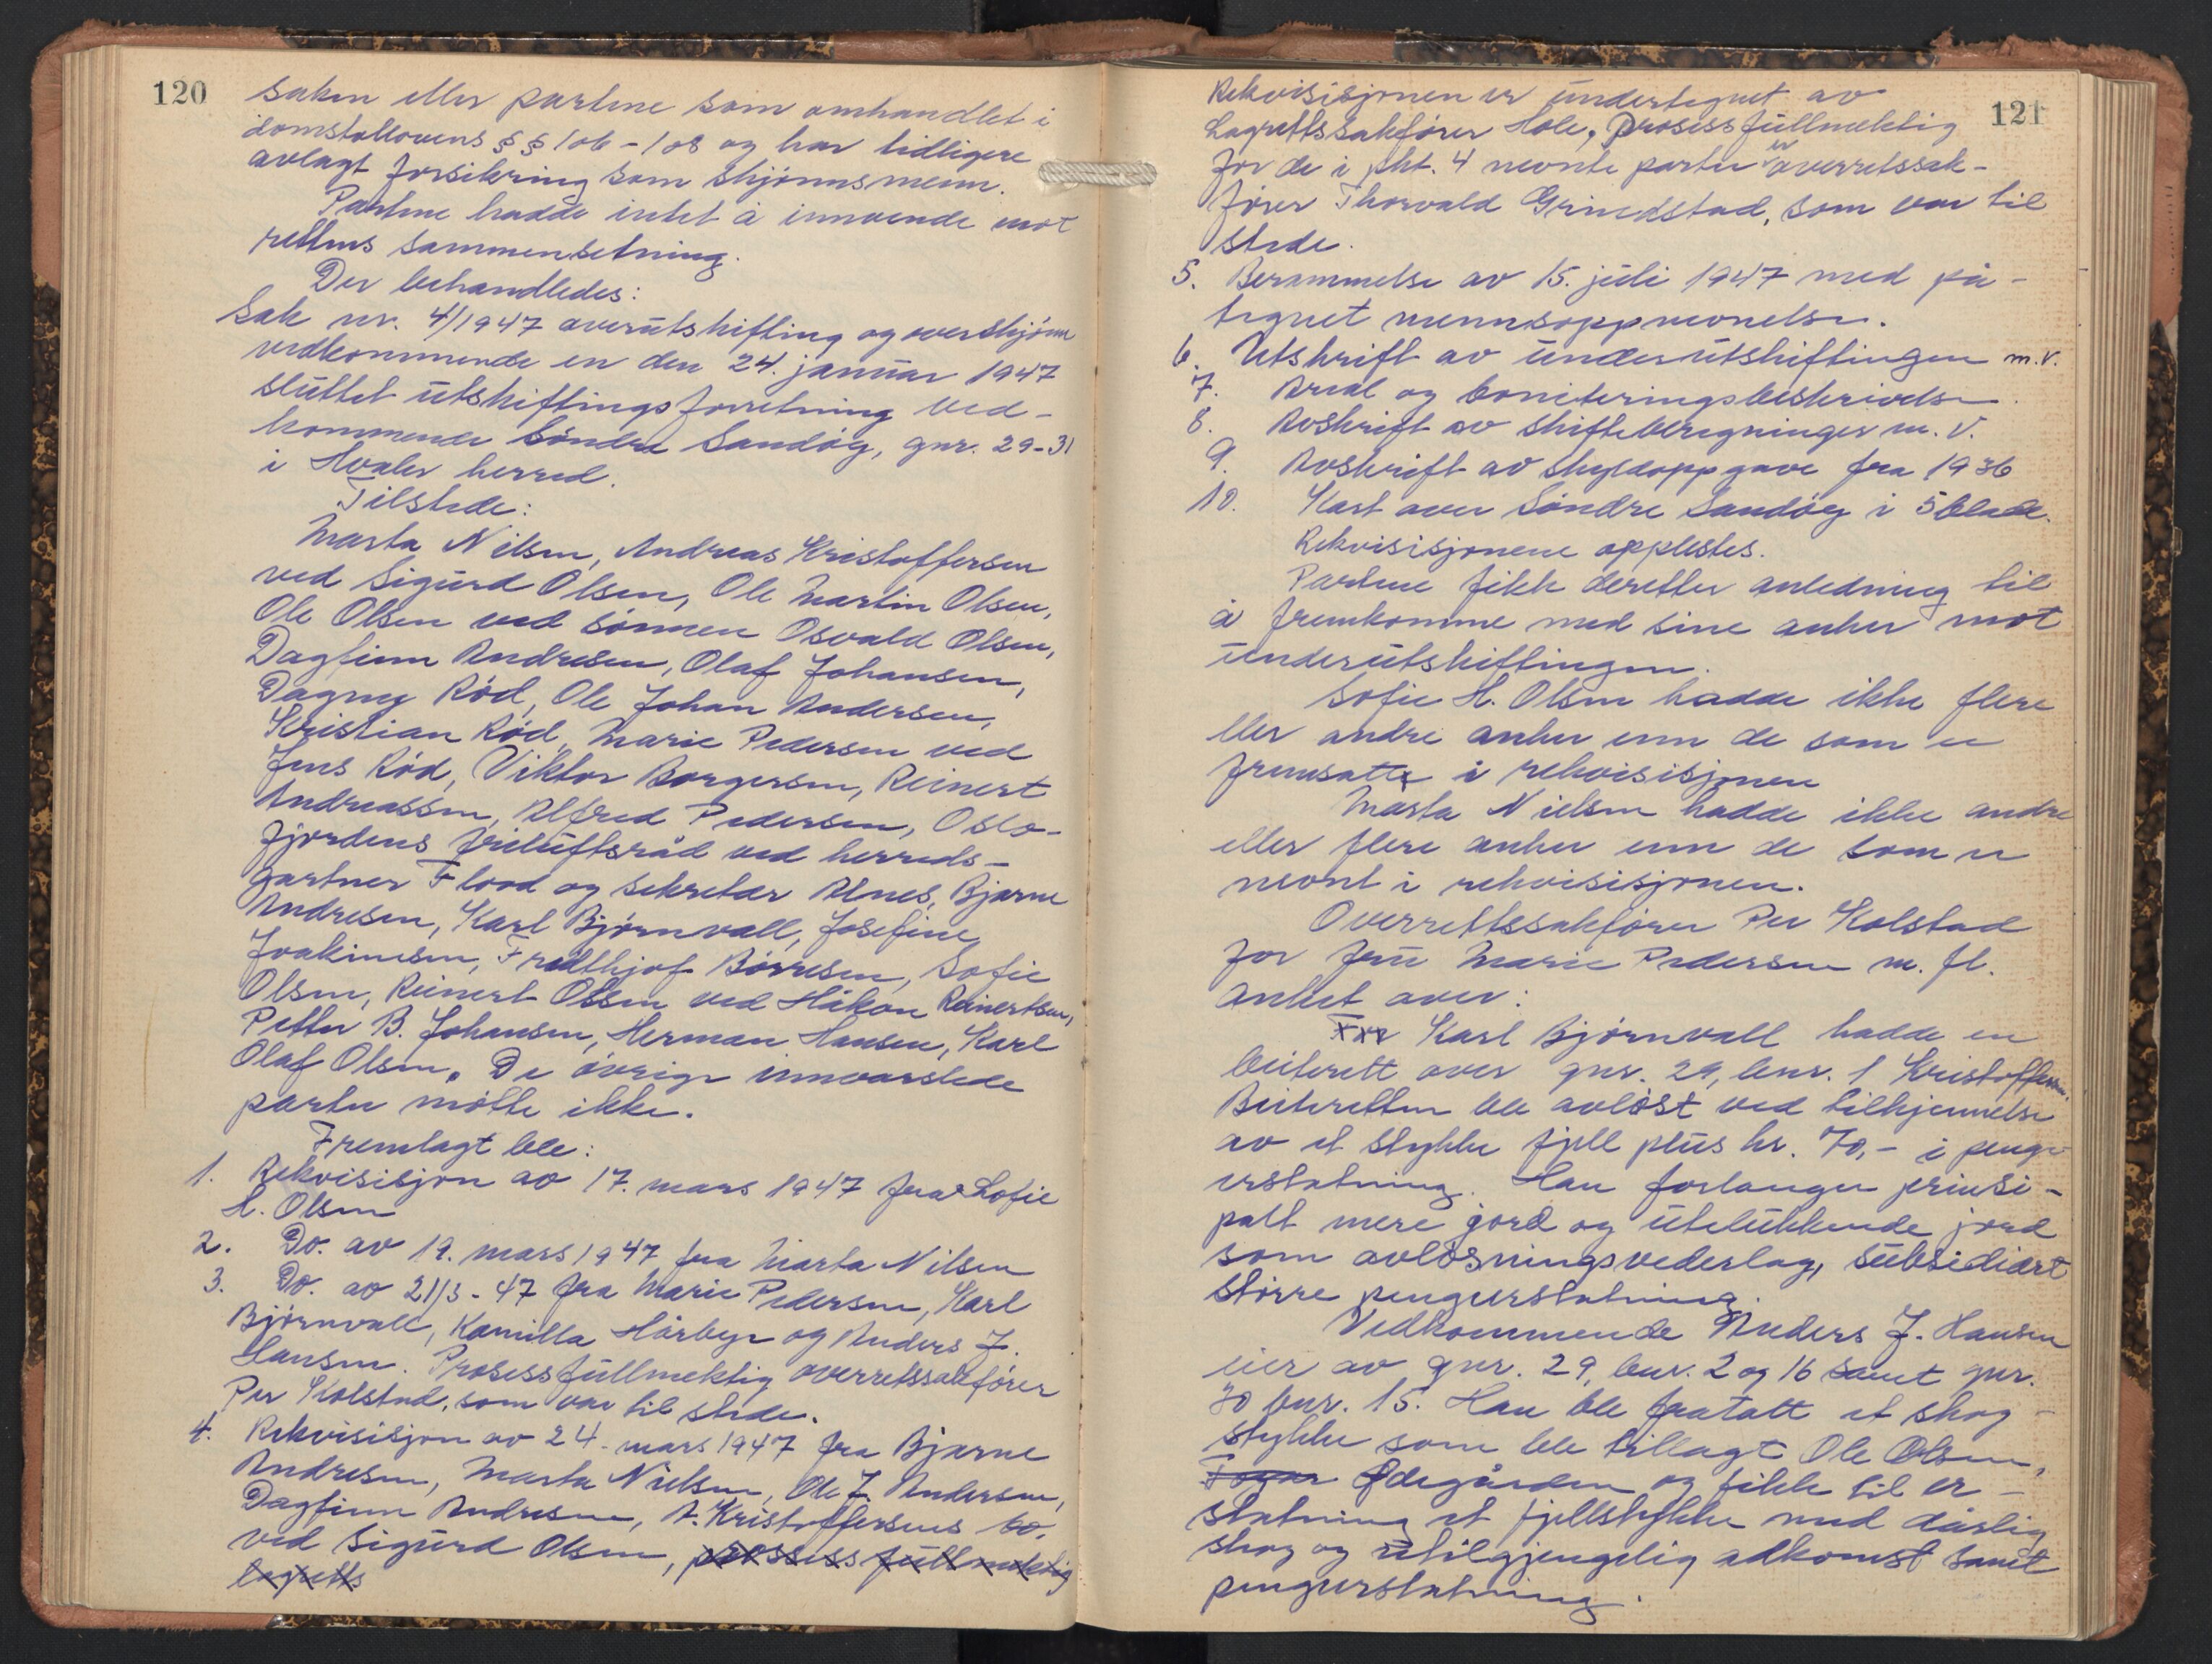 120
saken eller partene som omhandlet i
domstollovens §§ 106-108 og har tidligere
avlagt forsikring som skjønnsmenn.
Partene hadde intet å innvende mot
rettens sammensetning.
Der behandledes:
Sak nr. 4/1947 overutskifting og overskjønn
vedkommende en den 24. januar 1947
sluttet utskiftingsforretning ved-
kommende Søndre Sandøy, gnr. 29-31
i Hvaler herred.
Tilstede:
Marta Nilsen, Andreas Kristoffersen
ved Sigurd Olsen, Ole Martin Olsen,
Ole Olsen ved sønnen Osvald Olsen,
Dagfinn Andresen, Olaf Johansen,
Dagny Rød, Ole Johan Andersen,
Kristian Rød, Marie Pedersen ved
Jens Rød, Viktor Borgersen, Reinert
Andreassen, Alfred Pedersen, Oslo-
fjordens friluftsråd ved herreds-
gartner Flood og sekretær Alnes, Bjarne
Andresen, Karl Bjørnvall, Josefine
Joakimsen, Fredthjof Børresen, Sofie
Olsen, Reinert Olsen ved Håkon Reinertsen,
Petter B. Johansen, Herman Hansen, Karl
Olaf Olsen. De øvrige innvarslede
parter møtte ikke.
Fremlagt ble:
1. Rekvisisjon av 17. mars 1947 fra Sofie
H. Olsen
2. Do. av 19. mars 1947 fra Marta Nilsen
3. Do. av 21/3-47 fra Marie Pedersen, Karl
Bjørnvall, Kamilla Hårbye og Anders J.
Hansen. Prosessfullmektig overretssakfører
Per Kolstad, som var til stede.
4. Rekvisisjon av 24. mars 1947 fra Bjarne
Andresen, Marta Nielsen, Ole J. Andersen,
Dagfinn Andresen, A. Kristoffersens bo.
ved Sigurd Olsen, prosessfullmektig
lagretts
121
Rekvisisjonen er undertegnet av
Lagrettssakfører Hole, Prosessfullmektig
for de i pkt. 4 nevnte parter er overretssak-
fører Thorvald Grindstad, som var til
stede.
5. Berammelse av 15. juli 1947 med på-
tegnet mennsoppnevnelse.
6. Utskrift av underutskiftingen m.v.
7. Areal og boniteringsbeskrivelse
8. Avskrift av skifteberegninger m.v.
9. Avskrift av skyldoppgave fra 1936
10. Kart over Søndre Sandøy i 5 blade.
Rekvisisjonene opplestes.
Partene fikk deretter anledning til
å fremkomme med sine anker mot
underutskiftingen.
Sofie H. Olsen hadde ikke flere
eller andre anker enn de som er
fremsatte i rekvisisjonen
Marta Nielsen hadde ikke andre
eller flere anker enn de som er
nevnt i rekvisisjonen.
Overrettssakfører Per Kolstad
for fru Marie Pedersen m. fl.
anket over:
For Karl Bjørnvall hadde en
beiterett over gnr. 29, bnr. 1 Kristoffersen.
Beiteretten ble avløst ved tilkjennelse
av et stykke fjell plus kr. 70,- i penge-
erstatning. Han forlanger prinsi-
palt mere jord og utelukkende jord
som avløsningsvederlag, subsidiært
større pengeerstatning.
Vedkommende Anders J. Hansen
eier av gnr. 29, bnr. 2 og 16 samt gnr.
30 bnr. 15. Han ble fratatt et skog-
stykke som ble tillagt Ole Olsen,
Ødegården og fikk til er-
statning et fjellstykke med dårlig
skog og utilgjengelig adkomst samt
pengeerstatning.